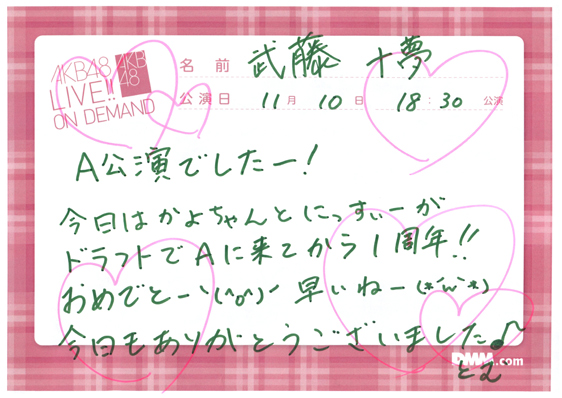 AKB48
AKB
48
LIVE!!
ON DEMAND
名 前 武藤 十夢
公演日 11月 10日 18:30 公演
A公演でしたー!
今日はかよちゃんとにっすぃーが
ドラフトでAに来てから1周年!!
おめでとー\(^o^)/ 早いねー(*´w`*)
今日もありがとうございました♪
DMM.com
とむ